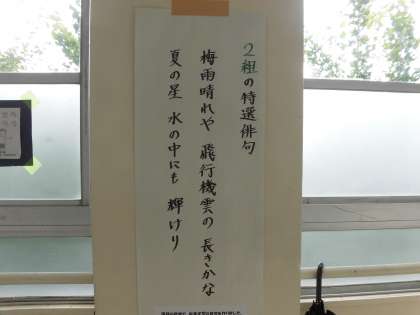 2組の特選俳句
梅雨晴れや 飛行機雲の 長きかな
夏の星 水の中にも 輝けり